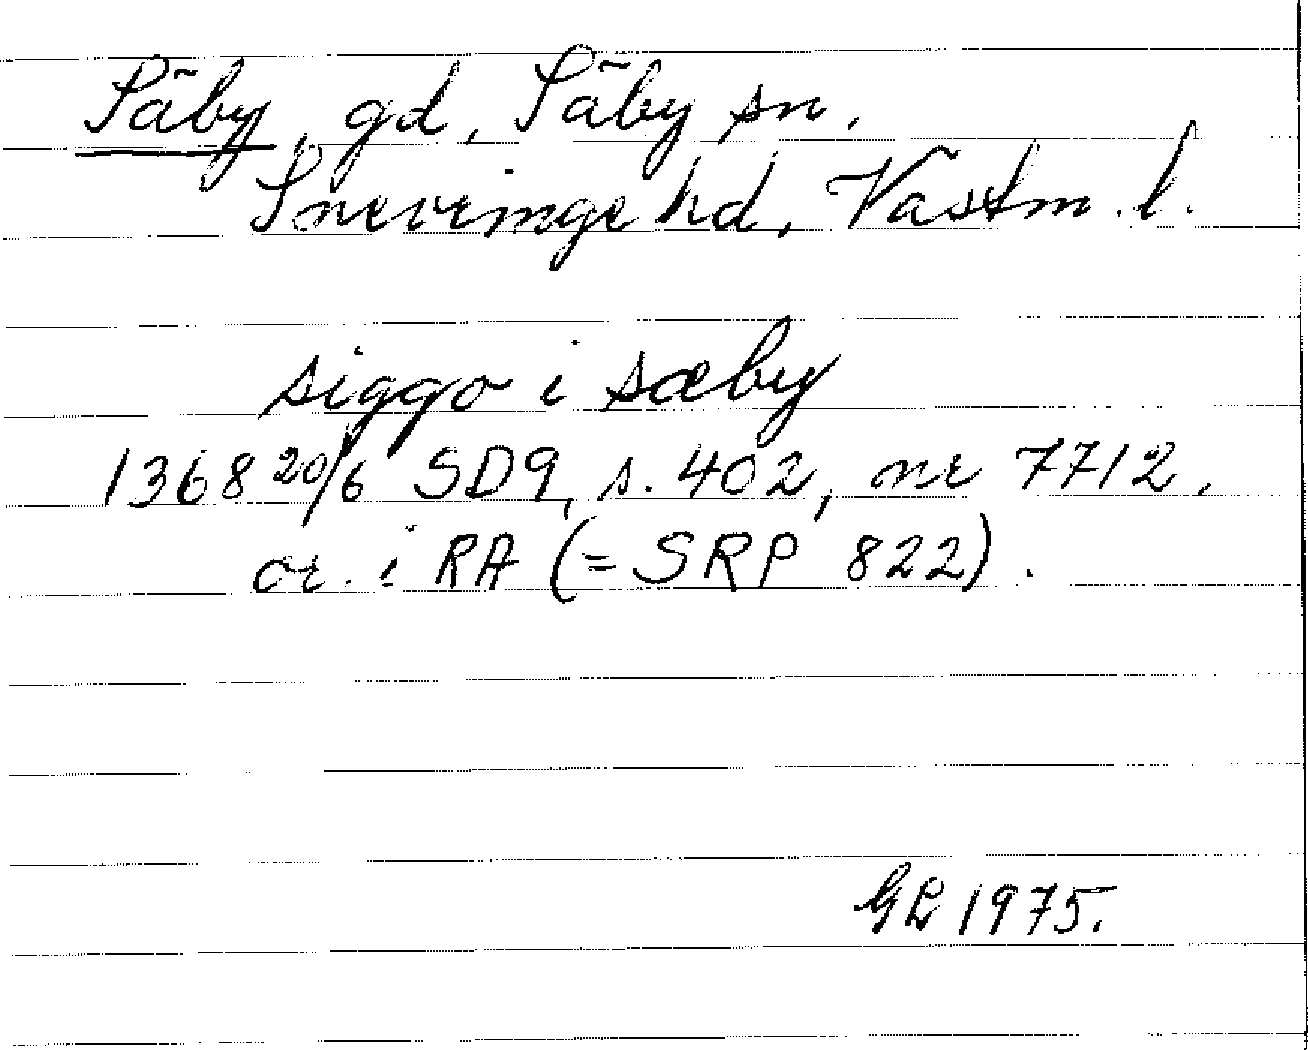 Säby, gd, Säby sn.
Snevringe hd, Västm. l.
siggo i sæby
1368 20/6 SD9, s. 402, nr 7712,
or. i RA (= SRP 822).
GL 1975.